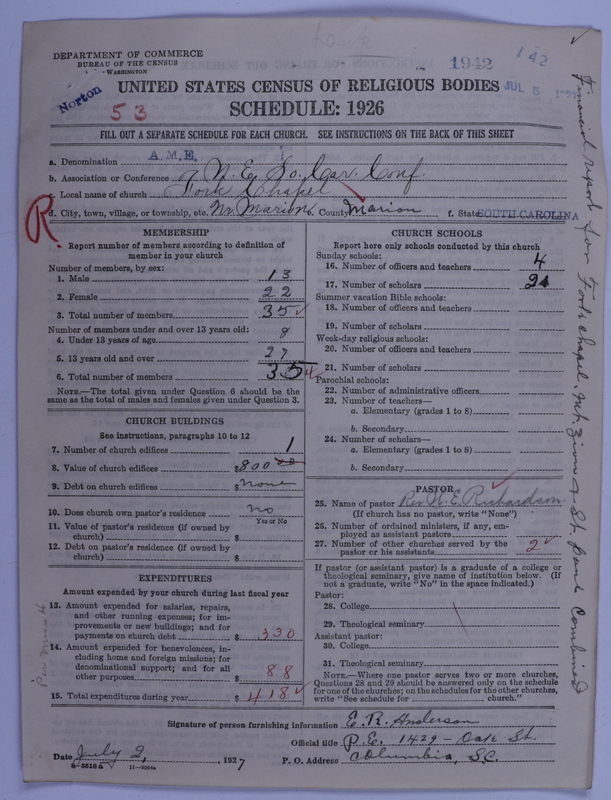 DEPARTMENT OF COMMERCE
BUREAU OF THE CENSUS
WASHINGTON
1942
142
JUL 5
Norton
53
UNITED STATES CENSUS OF RELIGIOUS BODIES
SCHEDULE: 1926
FILL OUT A SEPARATE SCHEDULE FOR EACH CHURCH. SEE INSTRUCTIONS ON THE BACK OF THIS SHEET
a. Denomination A.M.E.
b. Association or Conference N.E. So. Car. Conf.
c. Local name of church Fork Chapel
d. City, town, village, or township, etc. Nr. Marion e. County Marion f. State SOUTH CAROLINA
R.
MEMBERSHIP
Report number of members according to definition of
member in your church
Number of members, by sex:
1. Male 13
2. Female 22
3. Total number of members 35
Number of members under and over 13 years old:
4. Under 13 years of age 8
5. 13 years old and over 27
6. Total number of members 35
NOTE.—The total given under Question 6 should be the
same as the total of males and females given under Question 3.
CHURCH BUILDINGS
See instructions, paragraphs 10 to 12
7. Number of church edifices 1
8. Value of church edifices $800 00
9. Debt on church edifices $ none
10. Does church own pastor's residence no
Yes or No
11. Value of pastor's residence (if owned by
church) $
12. Debt on pastor's residence (if owned by
church) $
EXPENDITURES
Amount expended by your church during last fiscal year
13. Amount expended for salaries, repairs,
and other running expenses; for im-
provements or new buildings; and for
payments on church debt $ 330
14. Amount expended for benevolences, in-
cluding home and foreign missions; for
denominational support; and for all
other purposes $ 88
15. Total expenditures during year $ 418
CHURCH SCHOOLS
Report here only schools conducted by this church
Sunday schools:
16. Number of officers and teachers 4
17. Number of scholars 21
Summer vacation Bible schools:
18. Number of officers and teachers
19. Number of scholars
Week-day religious schools:
20. Number of officers and teachers
21. Number of scholars
Parochial schools:
22. Number of administrative officers
23. Number of teachers—
a. Elementary (grades 1 to 8)
b. Secondary
24. Number of scholars—
a. Elementary (grades 1 to 8)
b. Secondary
PASTOR
25. Name of pastor Rev. N. E. Richardson
(If church has no pastor, write "None")
26. Number of ordained ministers, if any, em-
ployed as assistant pastors
27. Number of other churches served by the
pastor or his assistants 2
If pastor (or assistant pastor) is a graduate of a college or
theological seminary, give name of institution below. (If
not a graduate, write "No" in the space indicated.)
Pastor:
28. College
29. Theological seminary
Assistant pastor:
30. College
31. Theological seminary
NOTE.—Where one pastor serves two or more churches,
Questions 28 and 29 should be answered only on the schedule
for one of the churches; on the schedules for the other churches,
write "See schedule for church."
Signature of person furnishing information E. R. Anderson
Official title P.E. 1429 - Oak St.
Date July 2, 1927 P. O. Address Columbia, S.C.
8-5516a 11-9204a
Financial report for Fork Chapel. Mt. Zion & St. Paul Combined